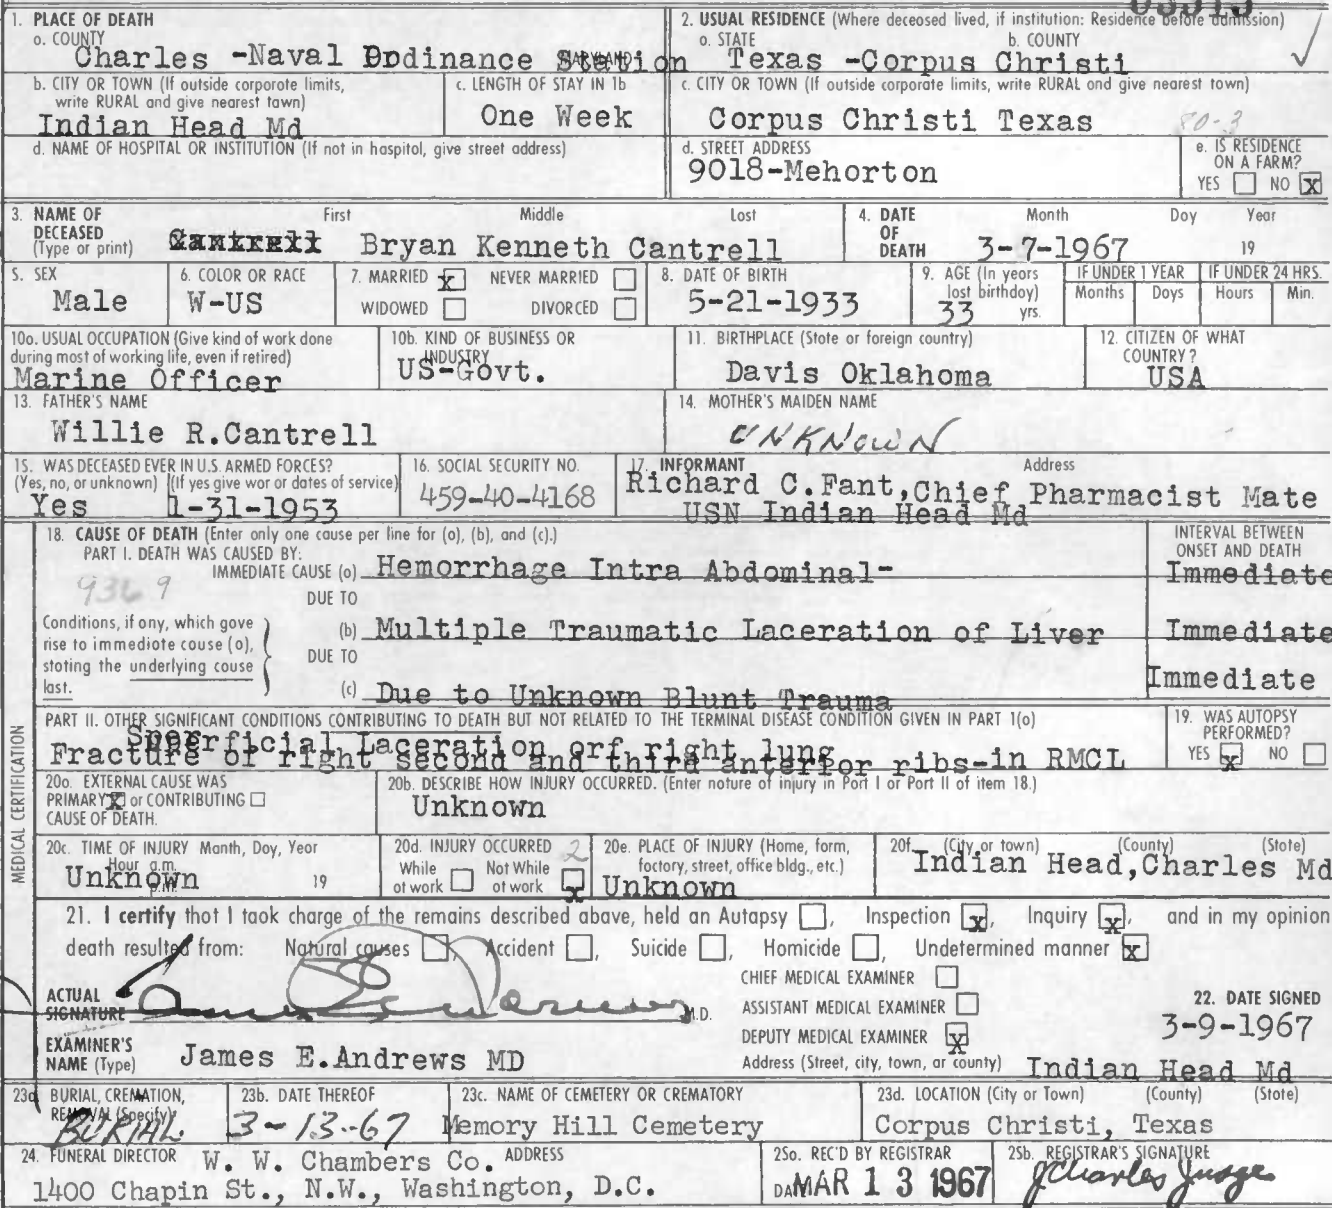 1. PLACE OF DEATH
a. COUNTY
Charles -Naval Dodinance Station
2. USUAL RESIDENCE (Where deceased lived, if institution: Residence before admission)
a. STATE b. COUNTY
Texas -Corpus Christi
b. CITY OR TOWN (If outside corporate limits,
write RURAL and give nearest town)
Indian Head Md
c. LENGTH OF STAY IN 1b
One Week
c. CITY OR TOWN (If outside corporate limits, write RURAL and give nearest town)
Corpus Christi Texas 80-3
d. NAME OF HOSPITAL OR INSTITUTION (If not in hospital, give street address)
d. STREET ADDRESS
9018-Mehorton
e. IS RESIDENCE
ON A FARM?
YES NO X
3. NAME OF
DECEASED
(Type or print)
First Middle Last
Cantrell Bryan Kenneth Cantrell
4. DATE
OF
DEATH
Month Day Year
3-7-1967 19
5. SEX
Male
6. COLOR OR RACE
W-US
7. MARRIED X NEVER MARRIED
WIDOWED DIVORCED
8. DATE OF BIRTH
5-21-1933
9. AGE (In years
last birthday)
33 yrs.
IF UNDER 1 YEAR
Months Days
IF UNDER 24 HRS.
Hours Min.
10a. USUAL OCCUPATION (Give kind of work done
during most of working life, even if retired)
Marine Officer
10b. KIND OF BUSINESS OR
INDUSTRY
US-Govt.
11. BIRTHPLACE (State or foreign country)
Davis Oklahoma
12. CITIZEN OF WHAT
COUNTRY?
USA
13. FATHER'S NAME
Willie R.Cantrell
14. MOTHER'S MAIDEN NAME
UNKNOWN
15. WAS DECEASED EVER IN U.S. ARMED FORCES?
(Yes, no, or unknown) (If yes give war or dates of service)
Yes 1-31-1953
16. SOCIAL SECURITY NO.
459-40-4168
17. INFORMANT Address
Richard C.Fant,Chief Pharmacist Mate
USN Indian Head Md
MEDICAL CERTIFICATION
18. CAUSE OF DEATH (Enter only one cause per line for (a), (b), and (c).)
PART I. DEATH WAS CAUSED BY:
IMMEDIATE CAUSE (a) Hemorrhage Intra Abdominal-
INTERVAL BETWEEN
ONSET AND DEATH
Immediate
9369
DUE TO
Conditions, if any, which gave
rise to immediate cause (a),
stating the underlying cause
last.
(b) Multiple Traumatic Laceration of Liver Immediate
DUE TO
(c) Due to Unknown Blunt Trauma Immediate
PART II. OTHER SIGNIFICANT CONDITIONS CONTRIBUTING TO DEATH BUT NOT RELATED TO THE TERMINAL DISEASE CONDITION GIVEN IN PART 1(a)
Sperficial Laceration orf right lung
Fracture of right second and third anterior ribs-in RMCL
19. WAS AUTOPSY
PERFORMED?
YES X NO
20a. EXTERNAL CAUSE WAS
PRIMARY X or CONTRIBUTING
CAUSE OF DEATH.
20b. DESCRIBE HOW INJURY OCCURRED. (Enter nature of injury in Part I or Part II of item 18.)
Unknown
20c. TIME OF INJURY Month, Day, Year
Hour a.m.
p.m.
Unknown 19
20d. INJURY OCCURRED 2
While
at work
Not While
at work X
20e. PLACE OF INJURY (Home, form,
factory, street, office bldg., etc.)
Unknown
20f. (City or town) (County) (State)
Indian Head,Charles Md
21. I certify that I took charge of the remains described above, held an Autopsy , Inspection X, Inquiry X, and in my opinion
death resulted from: Natural causes , Accident , Suicide , Homicide , Undetermined manner X
ACTUAL
SIGNATURE M.D.
CHIEF MEDICAL EXAMINER
ASSISTANT MEDICAL EXAMINER
DEPUTY MEDICAL EXAMINER X
22. DATE SIGNED
3-9-1967
EXAMINER'S
NAME (Type) James E.Andrews MD
Address (Street, city, town, or county) Indian Head Md
23a. BURIAL, CREMATION,
REMOVAL (Specify)
BURIAL
23b. DATE THEREOF
3-13-67
23c. NAME OF CEMETERY OR CREMATORY
Memory Hill Cemetery
23d. LOCATION (City or Town) (County) (State)
Corpus Christi, Texas
24. FUNERAL DIRECTOR W. W. Chambers Co. ADDRESS
1400 Chapin St., N.W., Washington, D.C.
25a. REC'D BY REGISTRAR
DATE MAR 13 1967
25b. REGISTRAR'S SIGNATURE
J Charles Judge